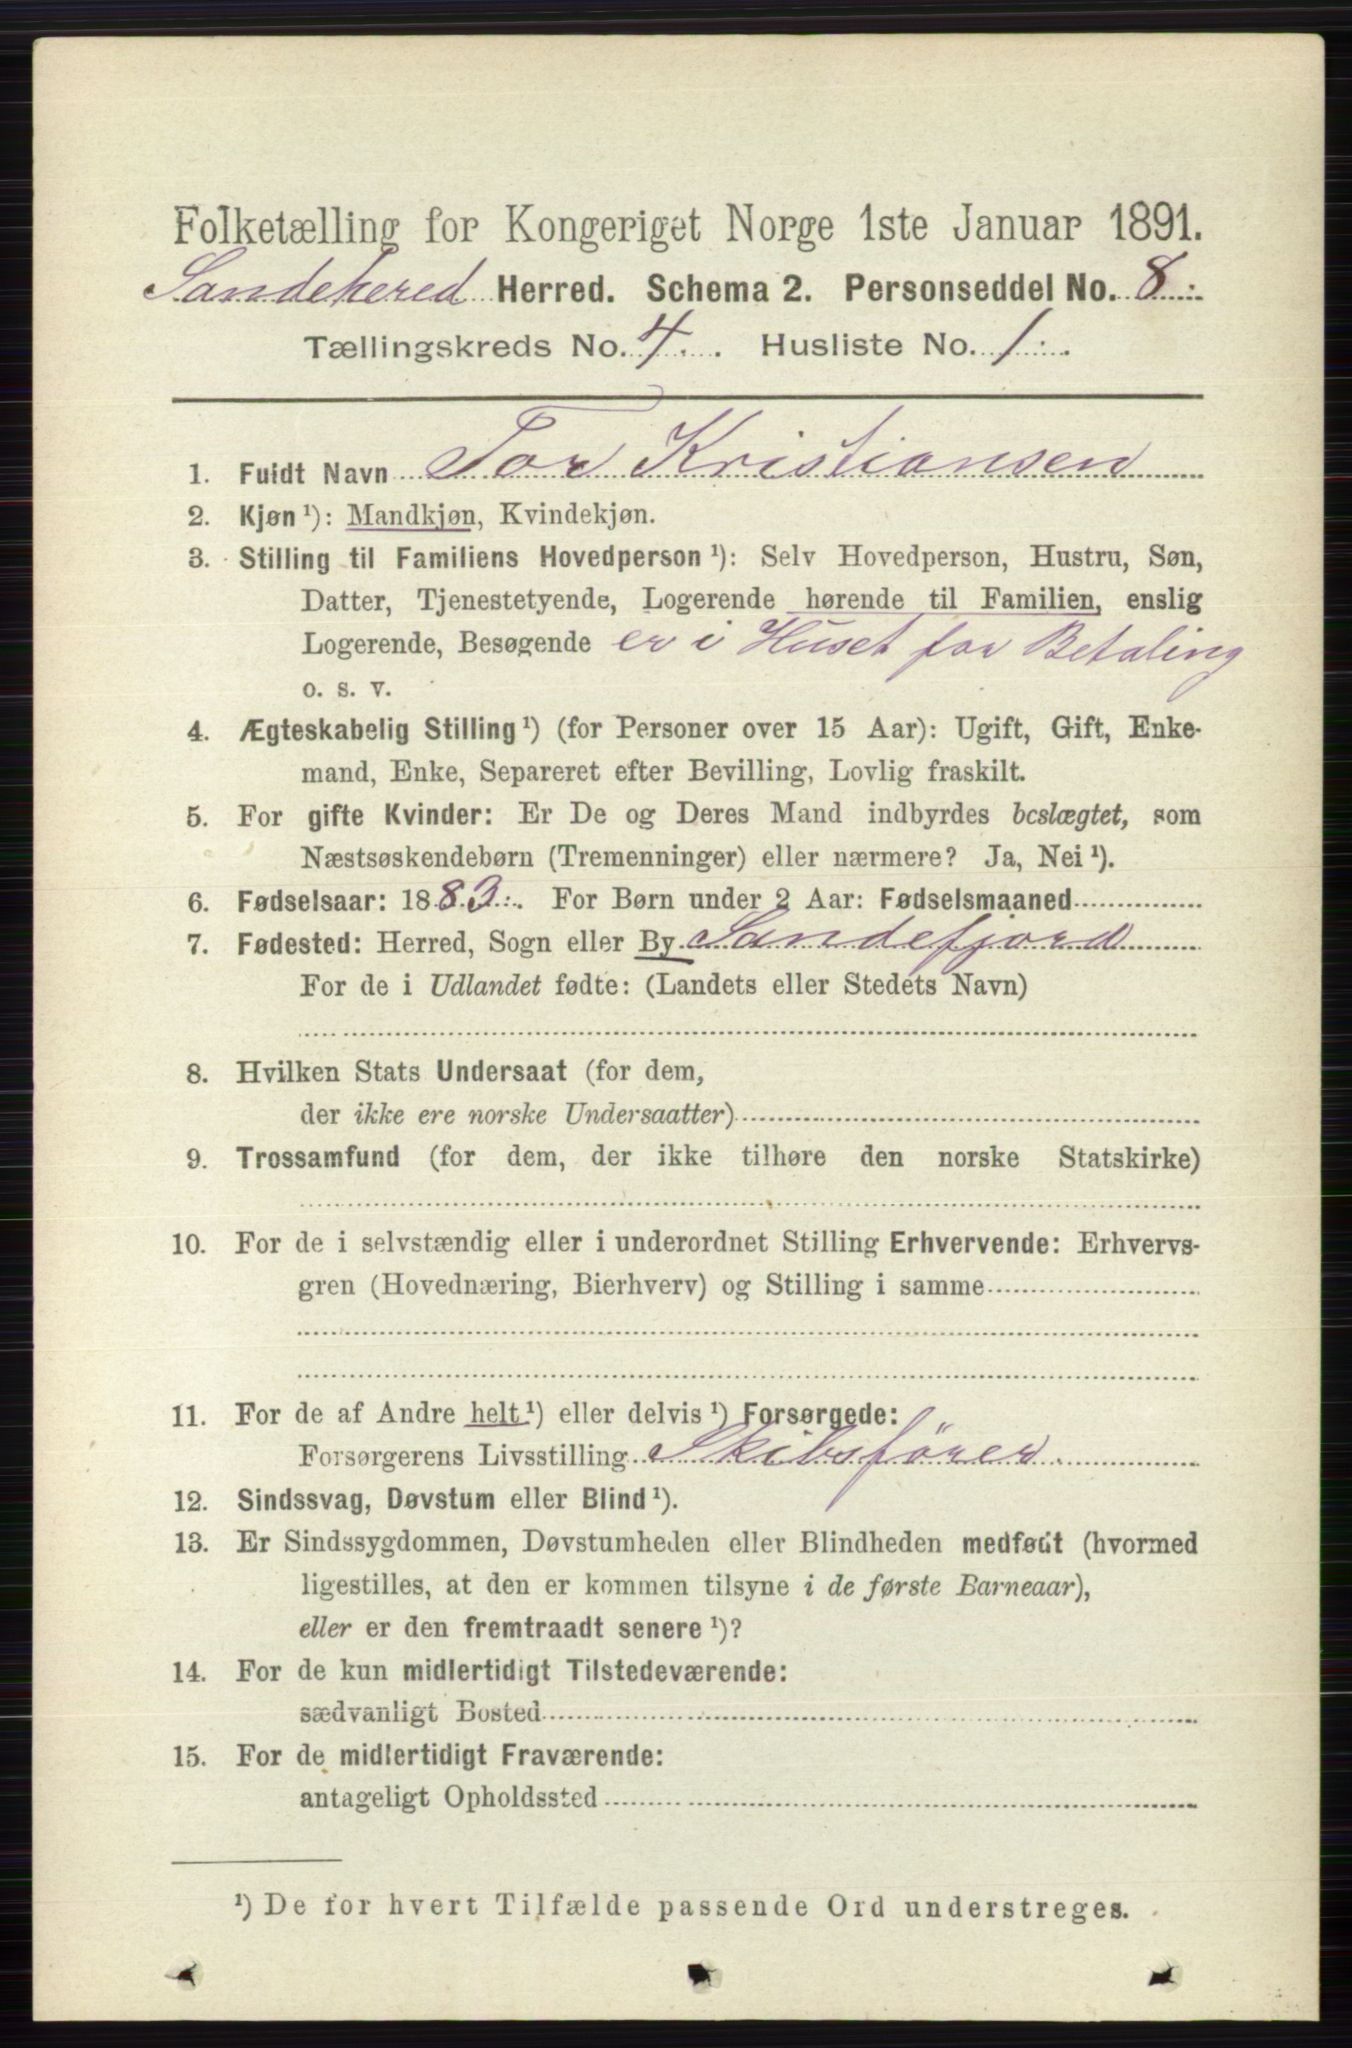 Folketælling for Kongeriget Norge 1ste Januar 1891.
Sandehered Herred. Schema 2. Personseddel No. 8.
Tællingskreds No. 4. Husliste No. 1.
1. Fuldt Navn Tor Kristiansen
2. Kjøn ¹): Mandkjøn, Kvindekjøn.
3. Stilling til Familiens Hovedperson ¹): Selv Hovedperson, Hustru, Søn,
Datter, Tjenestetyende, Logerende hørende til Familien, enslig
Logerende, Besøgende er i Huset for Betaling
o. s. v.
4. Ægteskabelig Stilling ¹) (for Personer over 15 Aar): Ugift, Gift, Enke-
mand, Enke, Separeret efter Bevilling, Lovlig fraskilt.
5. For gifte Kvinder: Er De og Deres Mand indbyrdes beslægtet, som
Næstsøskendebørn (Tremenninger) eller nærmere? Ja, Nei ¹).
6. Fødselsaar: 1883. For Børn under 2 Aar: Fødselsmaaned
7. Fødested: Herred, Sogn eller By Sandefjord
For de i Udlandet fødte: (Landets eller Stedets Navn)
8. Hvilken Stats Undersaat (for dem,
der ikke ere norske Undersaatter)
9. Trossamfund (for dem, der ikke tilhøre den norske Statskirke)
10. For de i selvstændig eller i underordnet Stilling Erhvervende: Erhvervs-
gren (Hovednæring, Bierhverv) og Stilling i samme
11. For de af Andre helt ¹) eller delvis ¹) Forsørgede:
Forsørgerens Livsstilling Skibsfører
12. Sindssvag, Døvstum eller Blind ¹).
13. Er Sindssygdommen, Døvstumheden eller Blindheden medfødt (hvormed
ligestilles, at den er kommen tilsyne i de første Barneaar),
eller er den fremtraadt senere ¹)?
14. For de kun midlertidigt Tilstedeværende:
sædvanligt Bosted
15. For de midlertidigt Fraværende:
antageligt Opholdssted
¹) De for hvert Tilfælde passende Ord understreges.